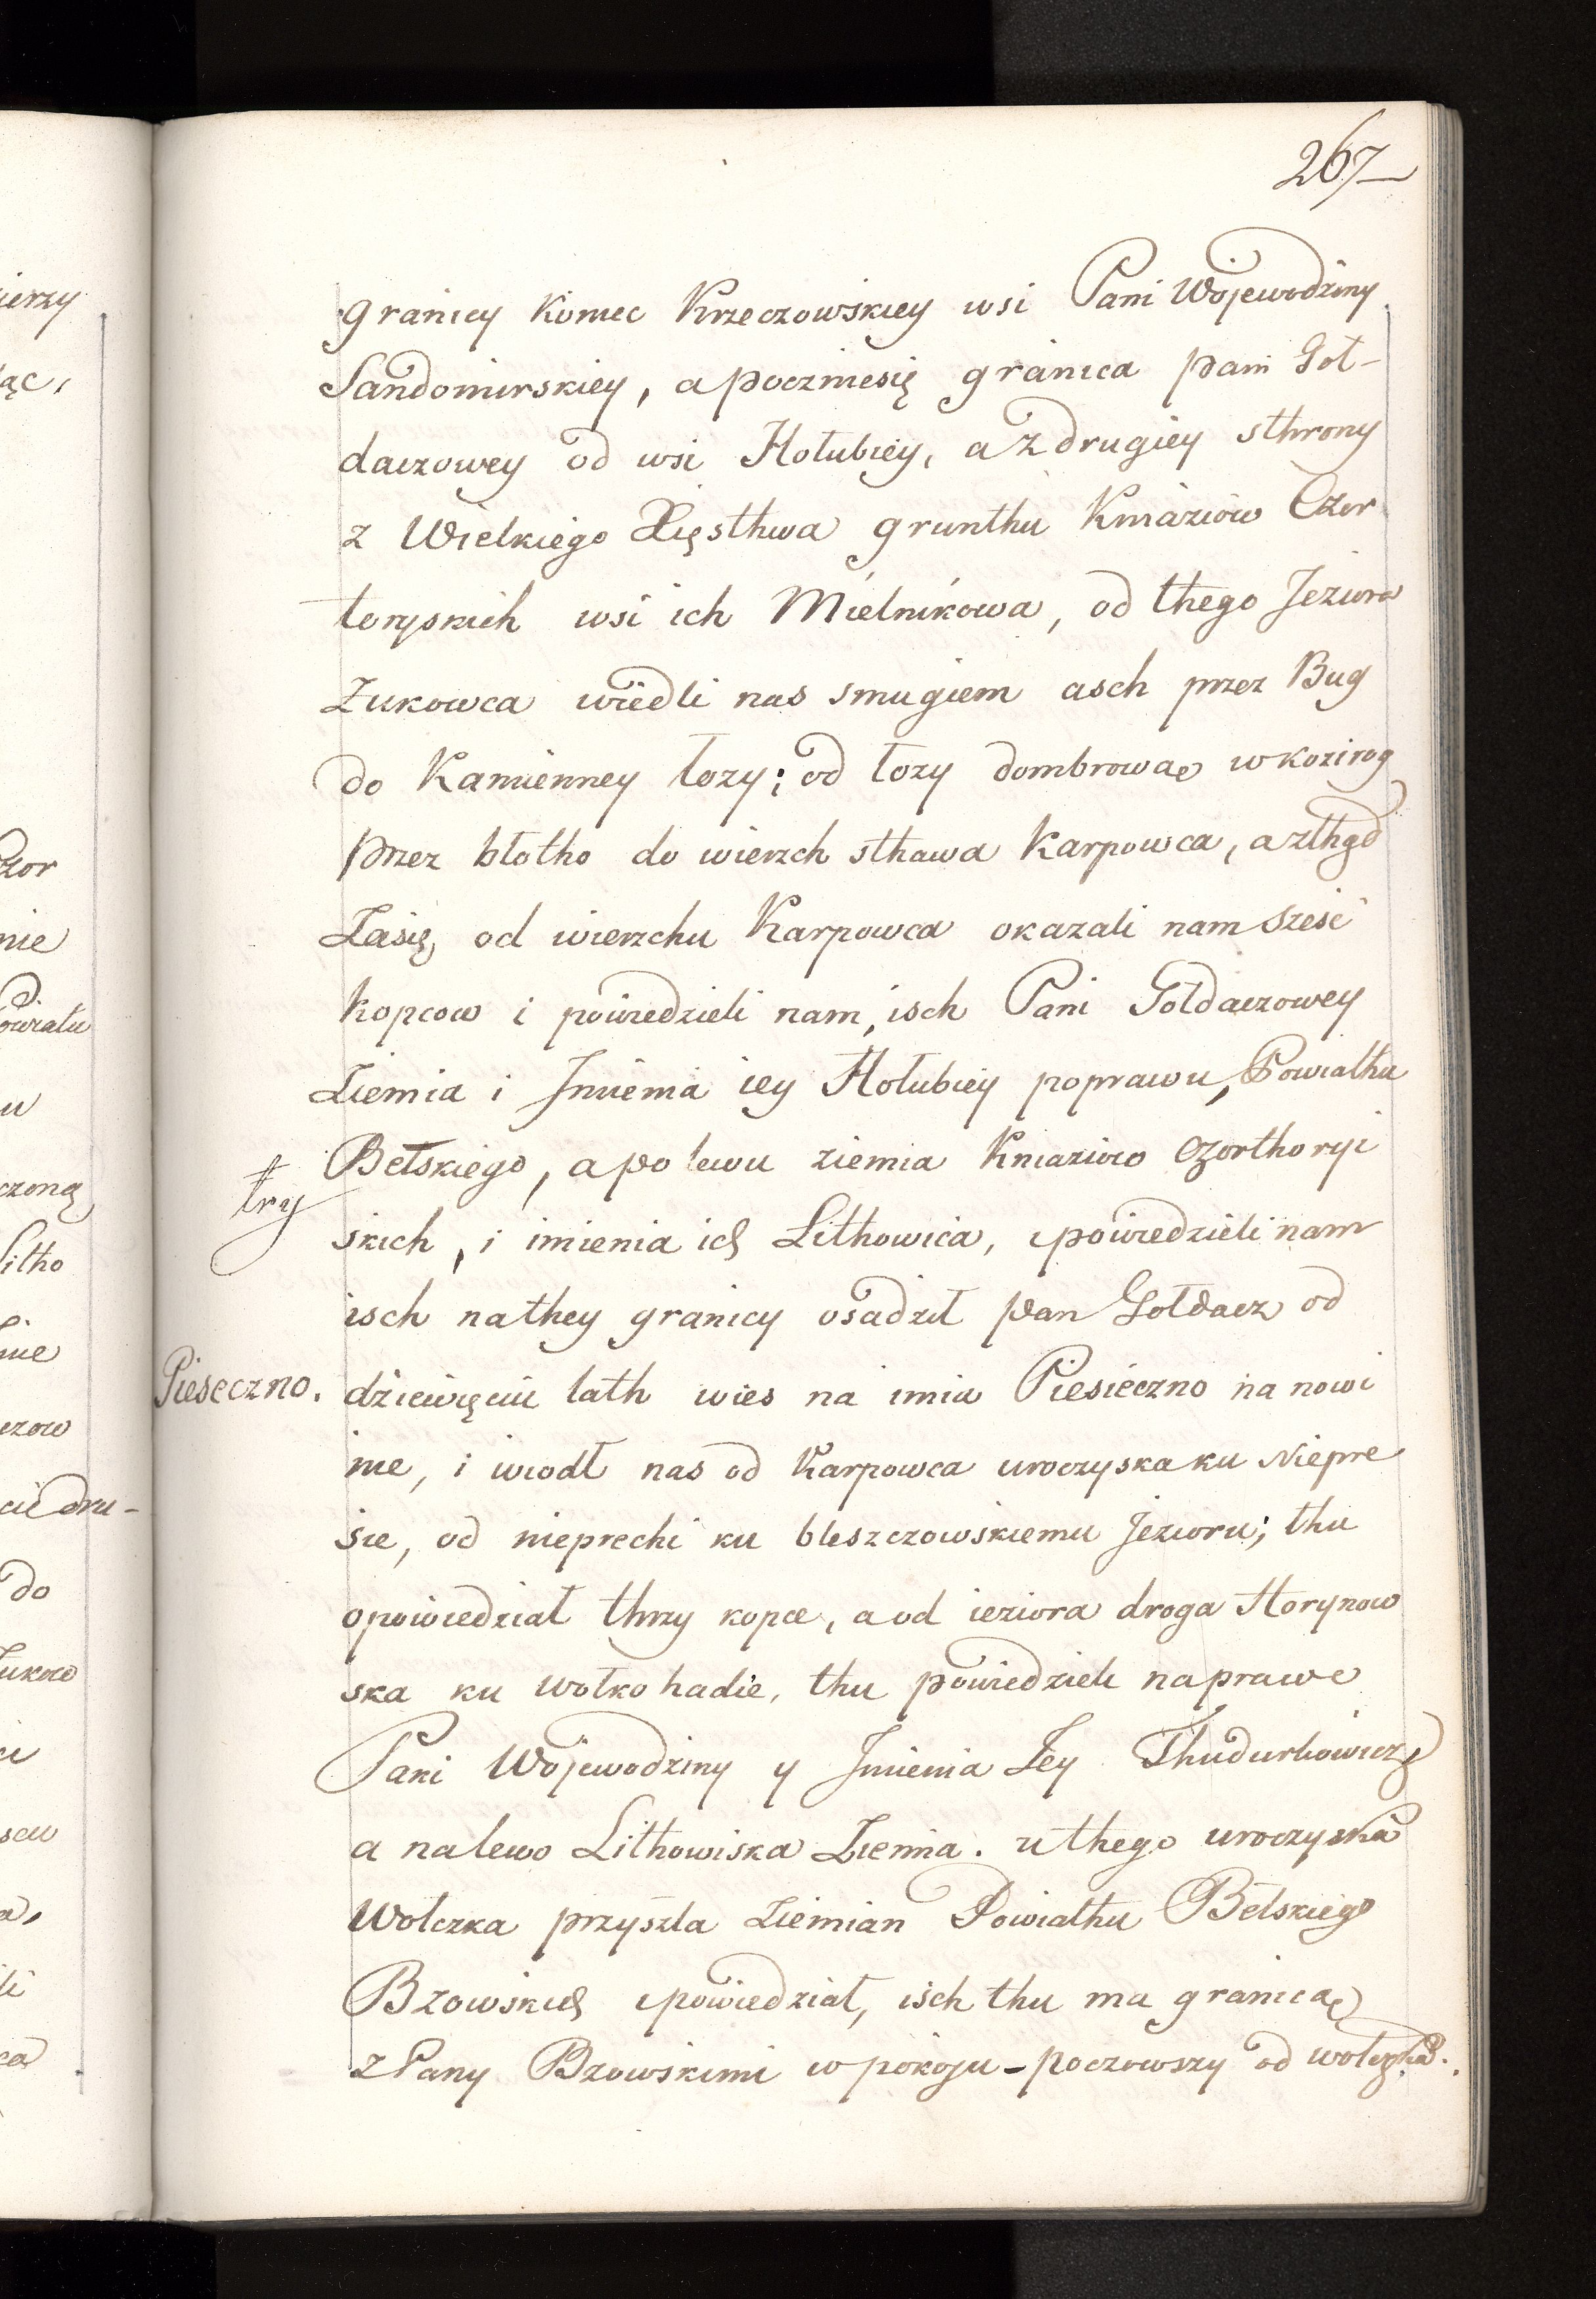 267
granicy koniec Krzeczowskiey wsi Pani Wojewodziny
Sandomirskiey, a poczniesię granica pani Goł-
daczowey od wsi Hołubiey, a z drugiey sthrony
z Wielkiego Xięsthwa grunthu Kniaziów Czor
toryskich wsi ich Mielnikowa, od thego Jeziora
Zukowca wiedli nas smugiem asch przez Bug
do Kamienney łozy; od łozy dombrową w kozirog
przez błotho do wierzch sthawa Karpowca, a zthąd
Zasię od wierzchu Karpowca okazali nam sześć
kopcow i powiedzieli nam, isch Pani Gołdaczowey
Ziemia i Jmienia iey Hołubiey poprawu, Powiathu
Bełskiego, a po lewu ziemia Kniaziow Czorthoryi
try
skich, i imienia ich Lithowica, ipowiedzieli nam
isch nathey granicy osadził pan Gołdacz od
Pieseczno. dziewięciu lath wies na imia Piesieczno na nowi
nie, i wiodł nas od Karpowca uroczyska ku Niepre
sie, od nieprechi ku bleszczowskiemu Jezioru; thu
opowiedział thrzy kopce, a od ieziora droga Horynow
ska ku wołkohadie, thu powiedzieli naprawe
Pani Wojewodziny y Jmienia Jey Thudurkowicze
a nalewo Lithowiska Ziemia. u thego uroczyska
Wołczka przyszła Ziemian Powiathu Bełskiego
Bzowskich ipowiedział, isch thu ma granicą
z Pany Bzowskimi w pokoju - poczowszy od wołczka.